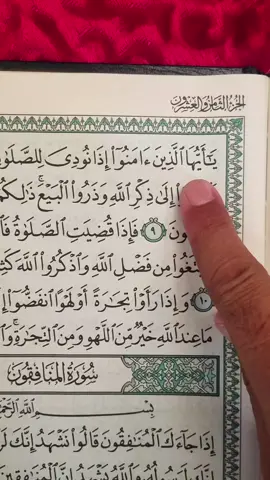 الجزء الثامن والعشرون
يَٰٓأَيُّهَا ٱلَّذِينَ ءَامَنُوٓا۟ إِذَا نُودِىَ لِلصَّلَوٰةِ
إِلَىٰ ذِكْرِ ٱللَّهِ وَذَرُوا۟ ٱلْبَيْعَ ۚ ذَٰلِكُمْ
٩ فَإِذَا قُضِيَتِ ٱلصَّلَوٰةُ
مِن فَضْلِ ٱللَّهِ وَٱذْكُرُوا۟ ٱللَّهَ
١٠ وَإِذَا رَأَوْا۟ تِجَٰرَةً أَوْ لَهْوًا ٱنفَضُّوٓا۟
مَا عِندَ ٱللَّهِ خَيْرٌ مِّنَ ٱللَّهْوِ وَمِنَ ٱلتِّجَٰرَةِ ۚ
سُورَةُ المُنَافِقُونَ
بِسْمِ ٱللَّهِ
إِذَا جَآءَكَ ٱلْمُنَٰفِقُونَ قَالُوا۟ نَشْهَدُ إِنَّكَ
إِنَّكَ لَرَسُولُهُۥ وَٱللَّهُ يَشْهَدُ إِنَّ ٱلْمُنَٰفِقِينَ